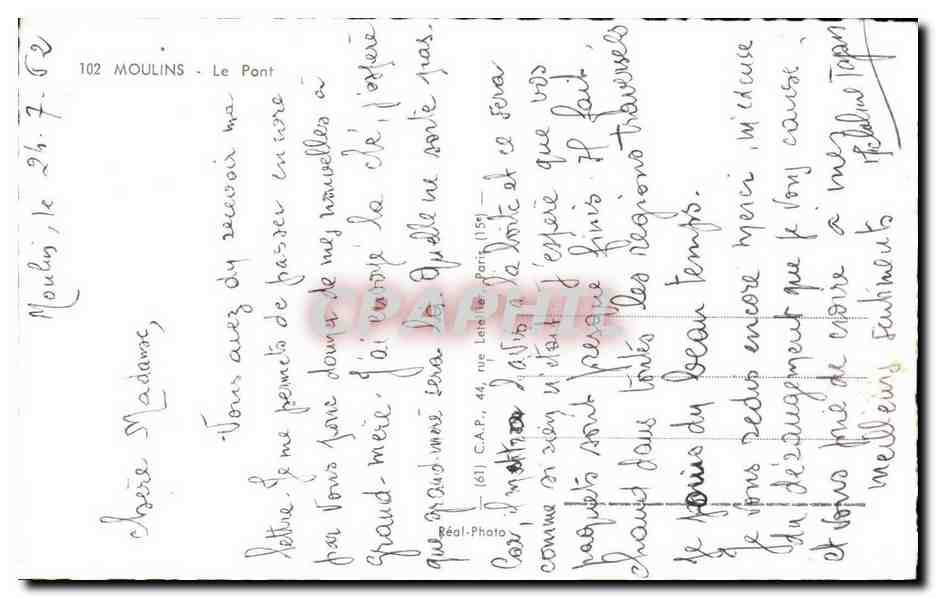 102 MOULINS - Le Pont
Moulins, le 24.7.62
Chère Madame,
Vous avez dû recevoir ma
lettre. Je me permets de passer encore
par vous pour donner de mes nouvelles à
grand-mère. J'ai envoyé la clé, j'espère
que grand-mère sera là. Qu'elle ne sorte pas.
Car, il m'a dans la boîte et ce sera
comme si rien n'était. J'espère que vos
paquets sont presque finis. Il fait
chaud dans toutes les régions traversées
Je jouis du beau temps.
Je vous redis encore merci, m'excuse
du dérangement que je vous cause.
et vous prie de croire à mes
meilleurs sentiments
(61) C.A.P., 44, rue Letellier, Paris (15e)
Réal-Photo
CPAPHIL